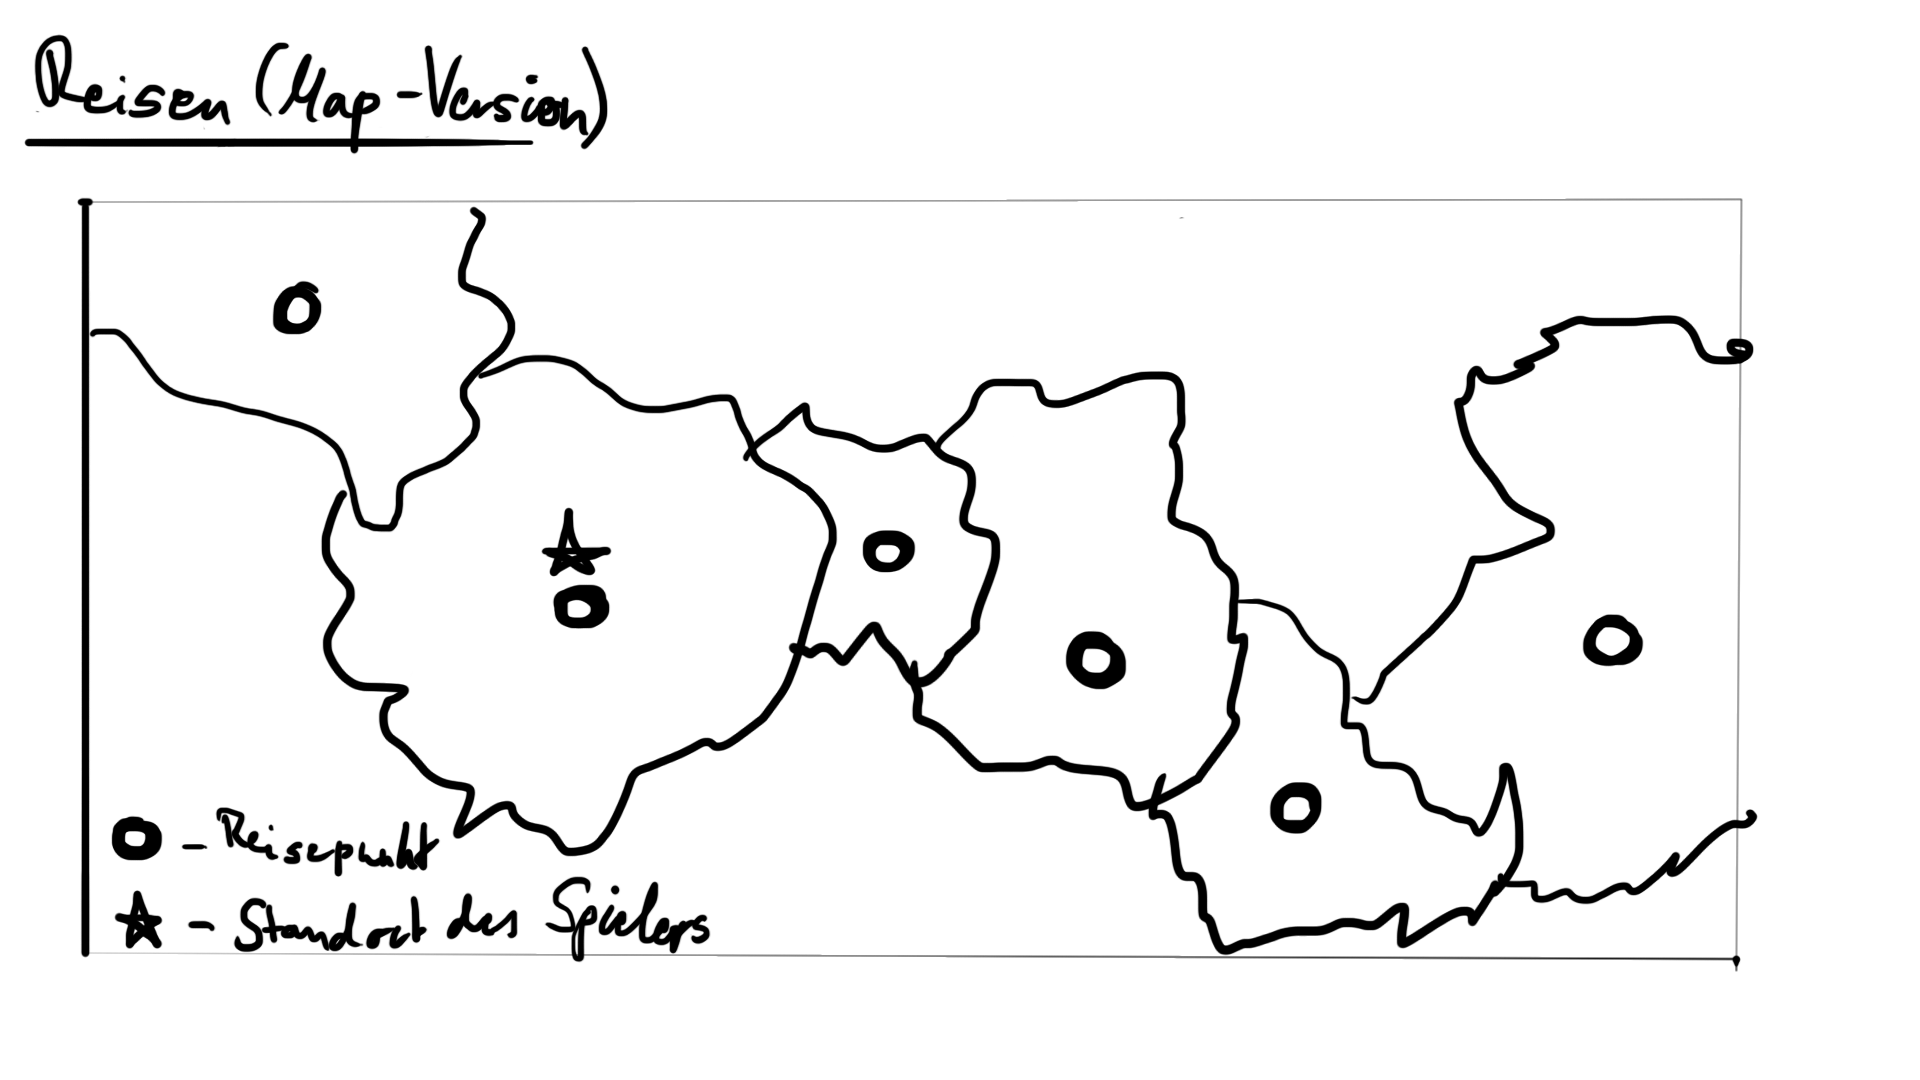 Reisen (Map-Version)
- Reisepunkt
- Standort des Spielers